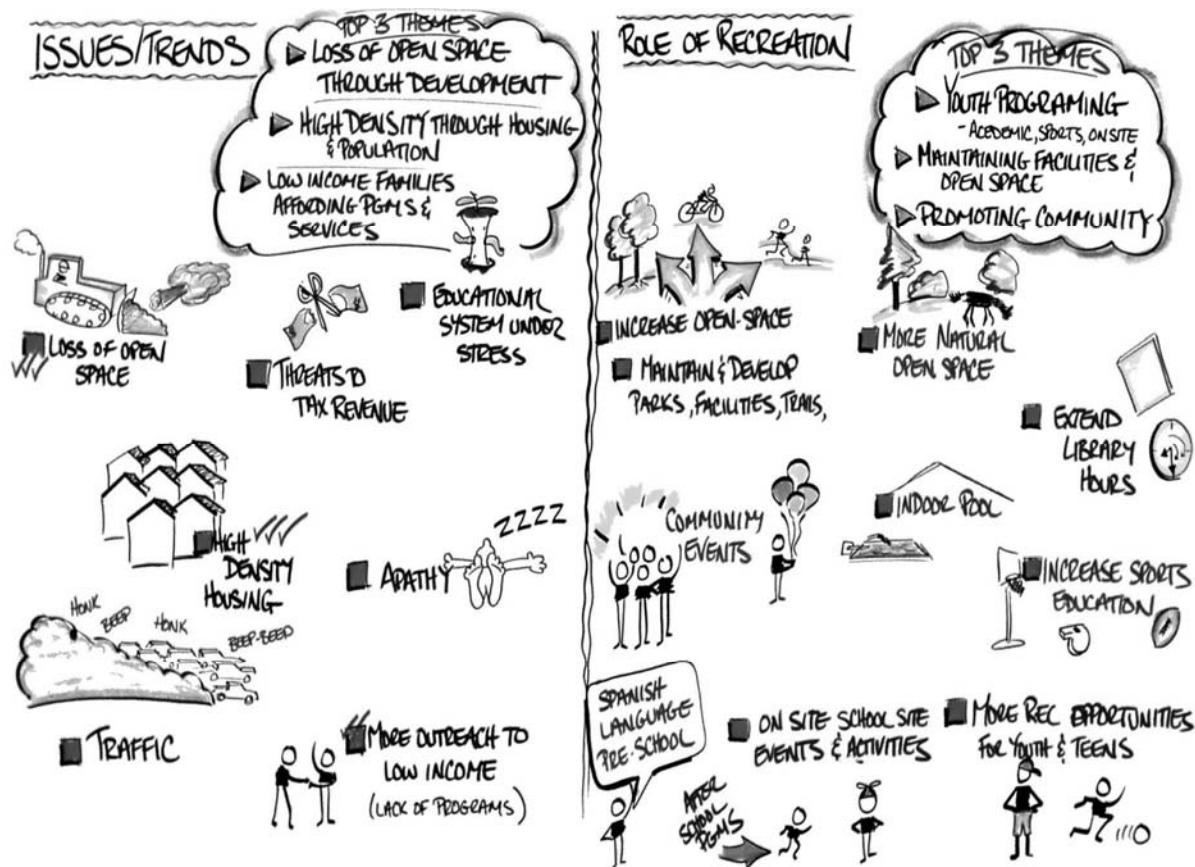 ISSUES/TRENDS
TOP 3 THEMES
LOSS OF OPEN SPACE
THROUGH DEVELOPMENT
HIGH DENSITY THROUGH HOUSING
& POPULATION
LOW INCOME FAMILIES
AFFORDING PGMS &
SERVICES
LOSS OF OPEN
SPACE
THREATS TO
TAX REVENUE
EDUCATIONAL
SYSTEM UNDER
STRESS
HIGH
DENSITY
HOUSING
APATHY
ZZZZ
HONK
BEEP
HONK
BEEP-BEED
TRAFFIC
MORE OUTREACH TO
LOW INCOME
(LACK OF PROGRAMS)
ROLE OF RECREATION
TOP 3 THEMES
YOUTH PROGRAMING
- ACEDEMIC, SPORTS, ON SITE
MAINTAINING FACILITIES &
OPEN SPACE
PROMOTING COMMUNITY
INCREASE OPEN-SPACE
MAINTAIN & DEVELOP
PARKS, FACILITIES, TRAILS,
MORE NATURAL
OPEN SPACE
EXTEND
LIBRARY
HOURS
COMMUNITY
EVENTS
INDOOR POOL
INCREASE SPORTS
EDUCATION
SPANISH
LANGUAGE
PRE-SCHOOL
ON SITE SCHOOL SITE
EVENTS & ACTIVITIES
MORE REC OPPORTUNITIES
FOR YOUTH & TEENS
AFTER
SCHOOL
PGMS